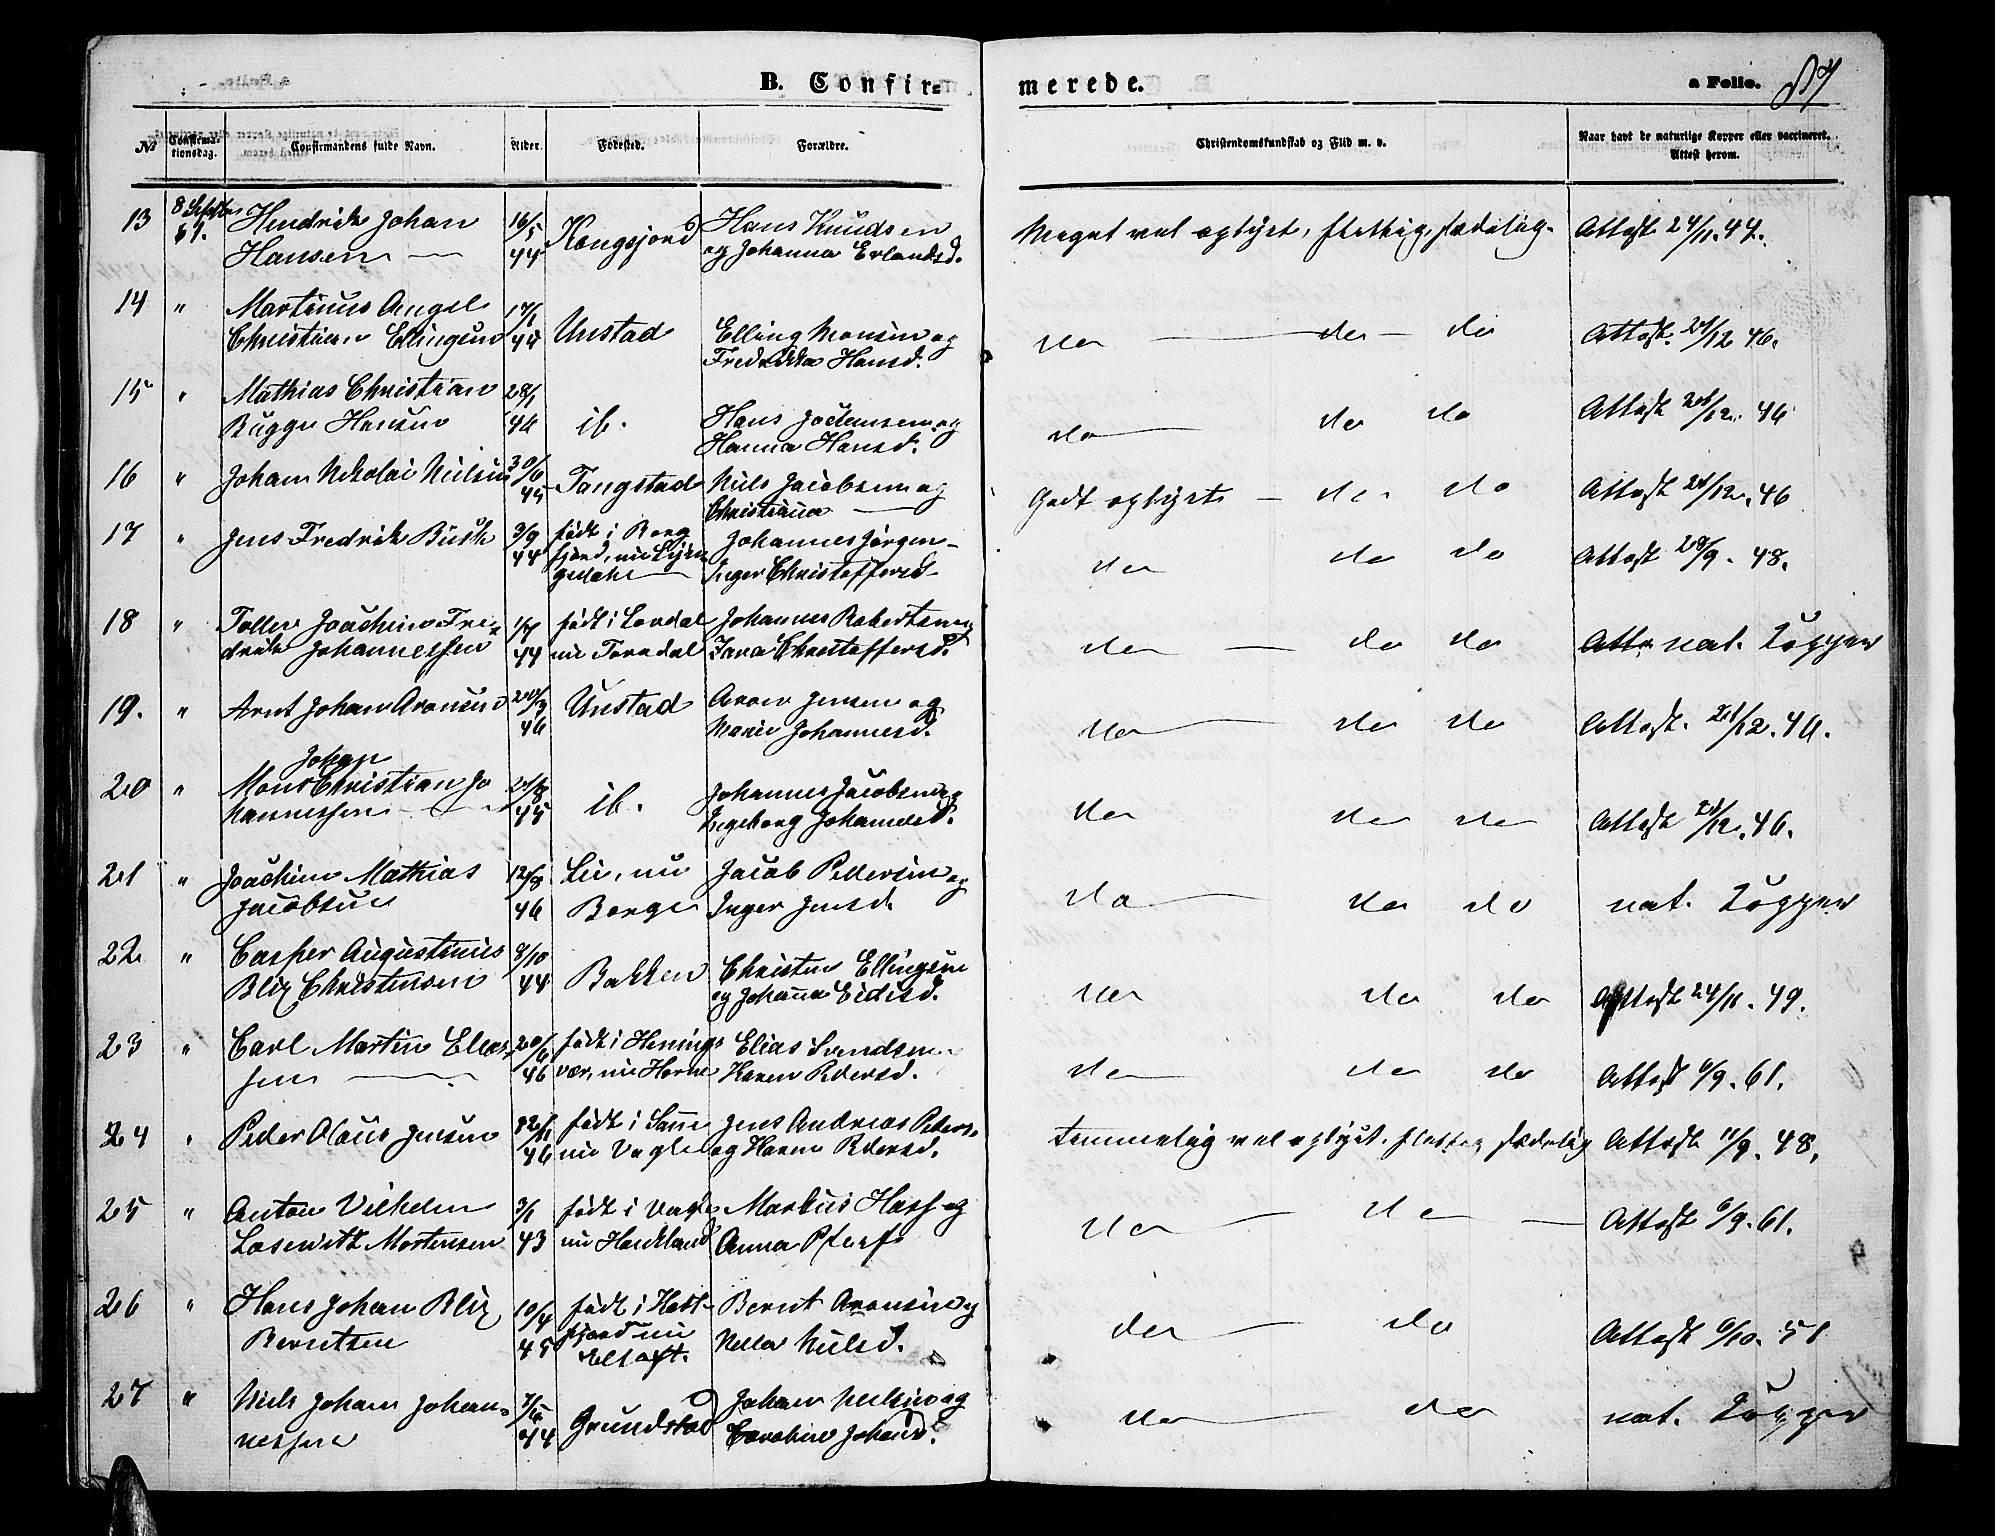 B. Confir=
merede.
a Folio. 87
No
Confirma-
tionsdag.
Confirmandens fulde Navn.
Alder.
Fødested.
Forældre.
Christendomskundskab og Flid m. v.
Naar havt de naturlige Kopper eller vaccineret.
Attest herom.
13 8 Septbr 61. Hendrik Johan Hansen 16/5 44 Kongsjord Hans Knudsen og Johanna Erlandsd. Meget vel oplyst, flittig, sædelig. Attest 24/11. 47.
14 " Martinus Angel Christian Ellingsen 17/1 44 Unstad Elling Monsen og Fredrikka Hansd. do do do Attest 21/12 46.
15 " Mathias Christian Bugge Hansen 28/1 46 ib. Hans Johansen og Hanna Hansd. do do do Attest 21/12. 46
16 " Johan Nikolai Nielsen 30/6 45 Tangstad Niels Jacobsen og Christiana Godt oplyst do do Attest 21/12. 46
17 " Jens Fredrik Busk 3/9 44 født i Borg fjord, nu Johannes Jørgen- Inger Christoffersd. do do do Attest 28/9. 48.
18 " Toller Joachim Fre= drik Johannessen 44 født i Londal nu Torndal Johannes Robertsen og Jana Christoffersd. do do do nat. Kopper
19. " Arnt Johan Aronsen 20/3 46 Unstad Aron Jensen og Marie Johannesd. do do do Attest. 21/12. 46.
20 " Johan Mons Christian Jo hannessen 21/8 45 ib. Johannes Jacobsen og Ingeborg Johannesd. do do do Attest 21/12. 46.
21 " Joachim Mathias Jacobsen 12/8 46 Lie, nu Borge Jacob Pedersen og Inger Jensd. do do do nat. Kopper
22 " Casper Augustinus Blix Christensen 8/10 44 Bakken Christen Ellingsen og Johanna Eidisd. do do do Attest 24/11. 49.
23 " Carl Martin Elias= sen 20/6 46 født i Henings vær, nu Horne Elias Svendsen Karen Pedersd. do do do Attest 6/9. 61.
24 " Peder Olaus Jensen 46 født i Sann nu Vagle Jens Andreas Peders. og Karen Pedersd. Temmelig vel oplyst, flittig, sædelig Attest 11/9. 48.
25 " Anton Vilhelm Losewitz Mortensen 3/1 43 født i Vagle nu Haukland Markus Hass og Anna do do Attest 6/9. 61.
26 " Hans Johan Blix Berntsen 10/4 45 født i Høst- fjord nu Eltoft. Bernt Aronsen og Nella Nielsd. do do Attest 6/10. 51
27 " Niels Johan Johan= nessen 44 Grundstad Johan Nielsen og Caroline Johansd. do do nat. Kopper